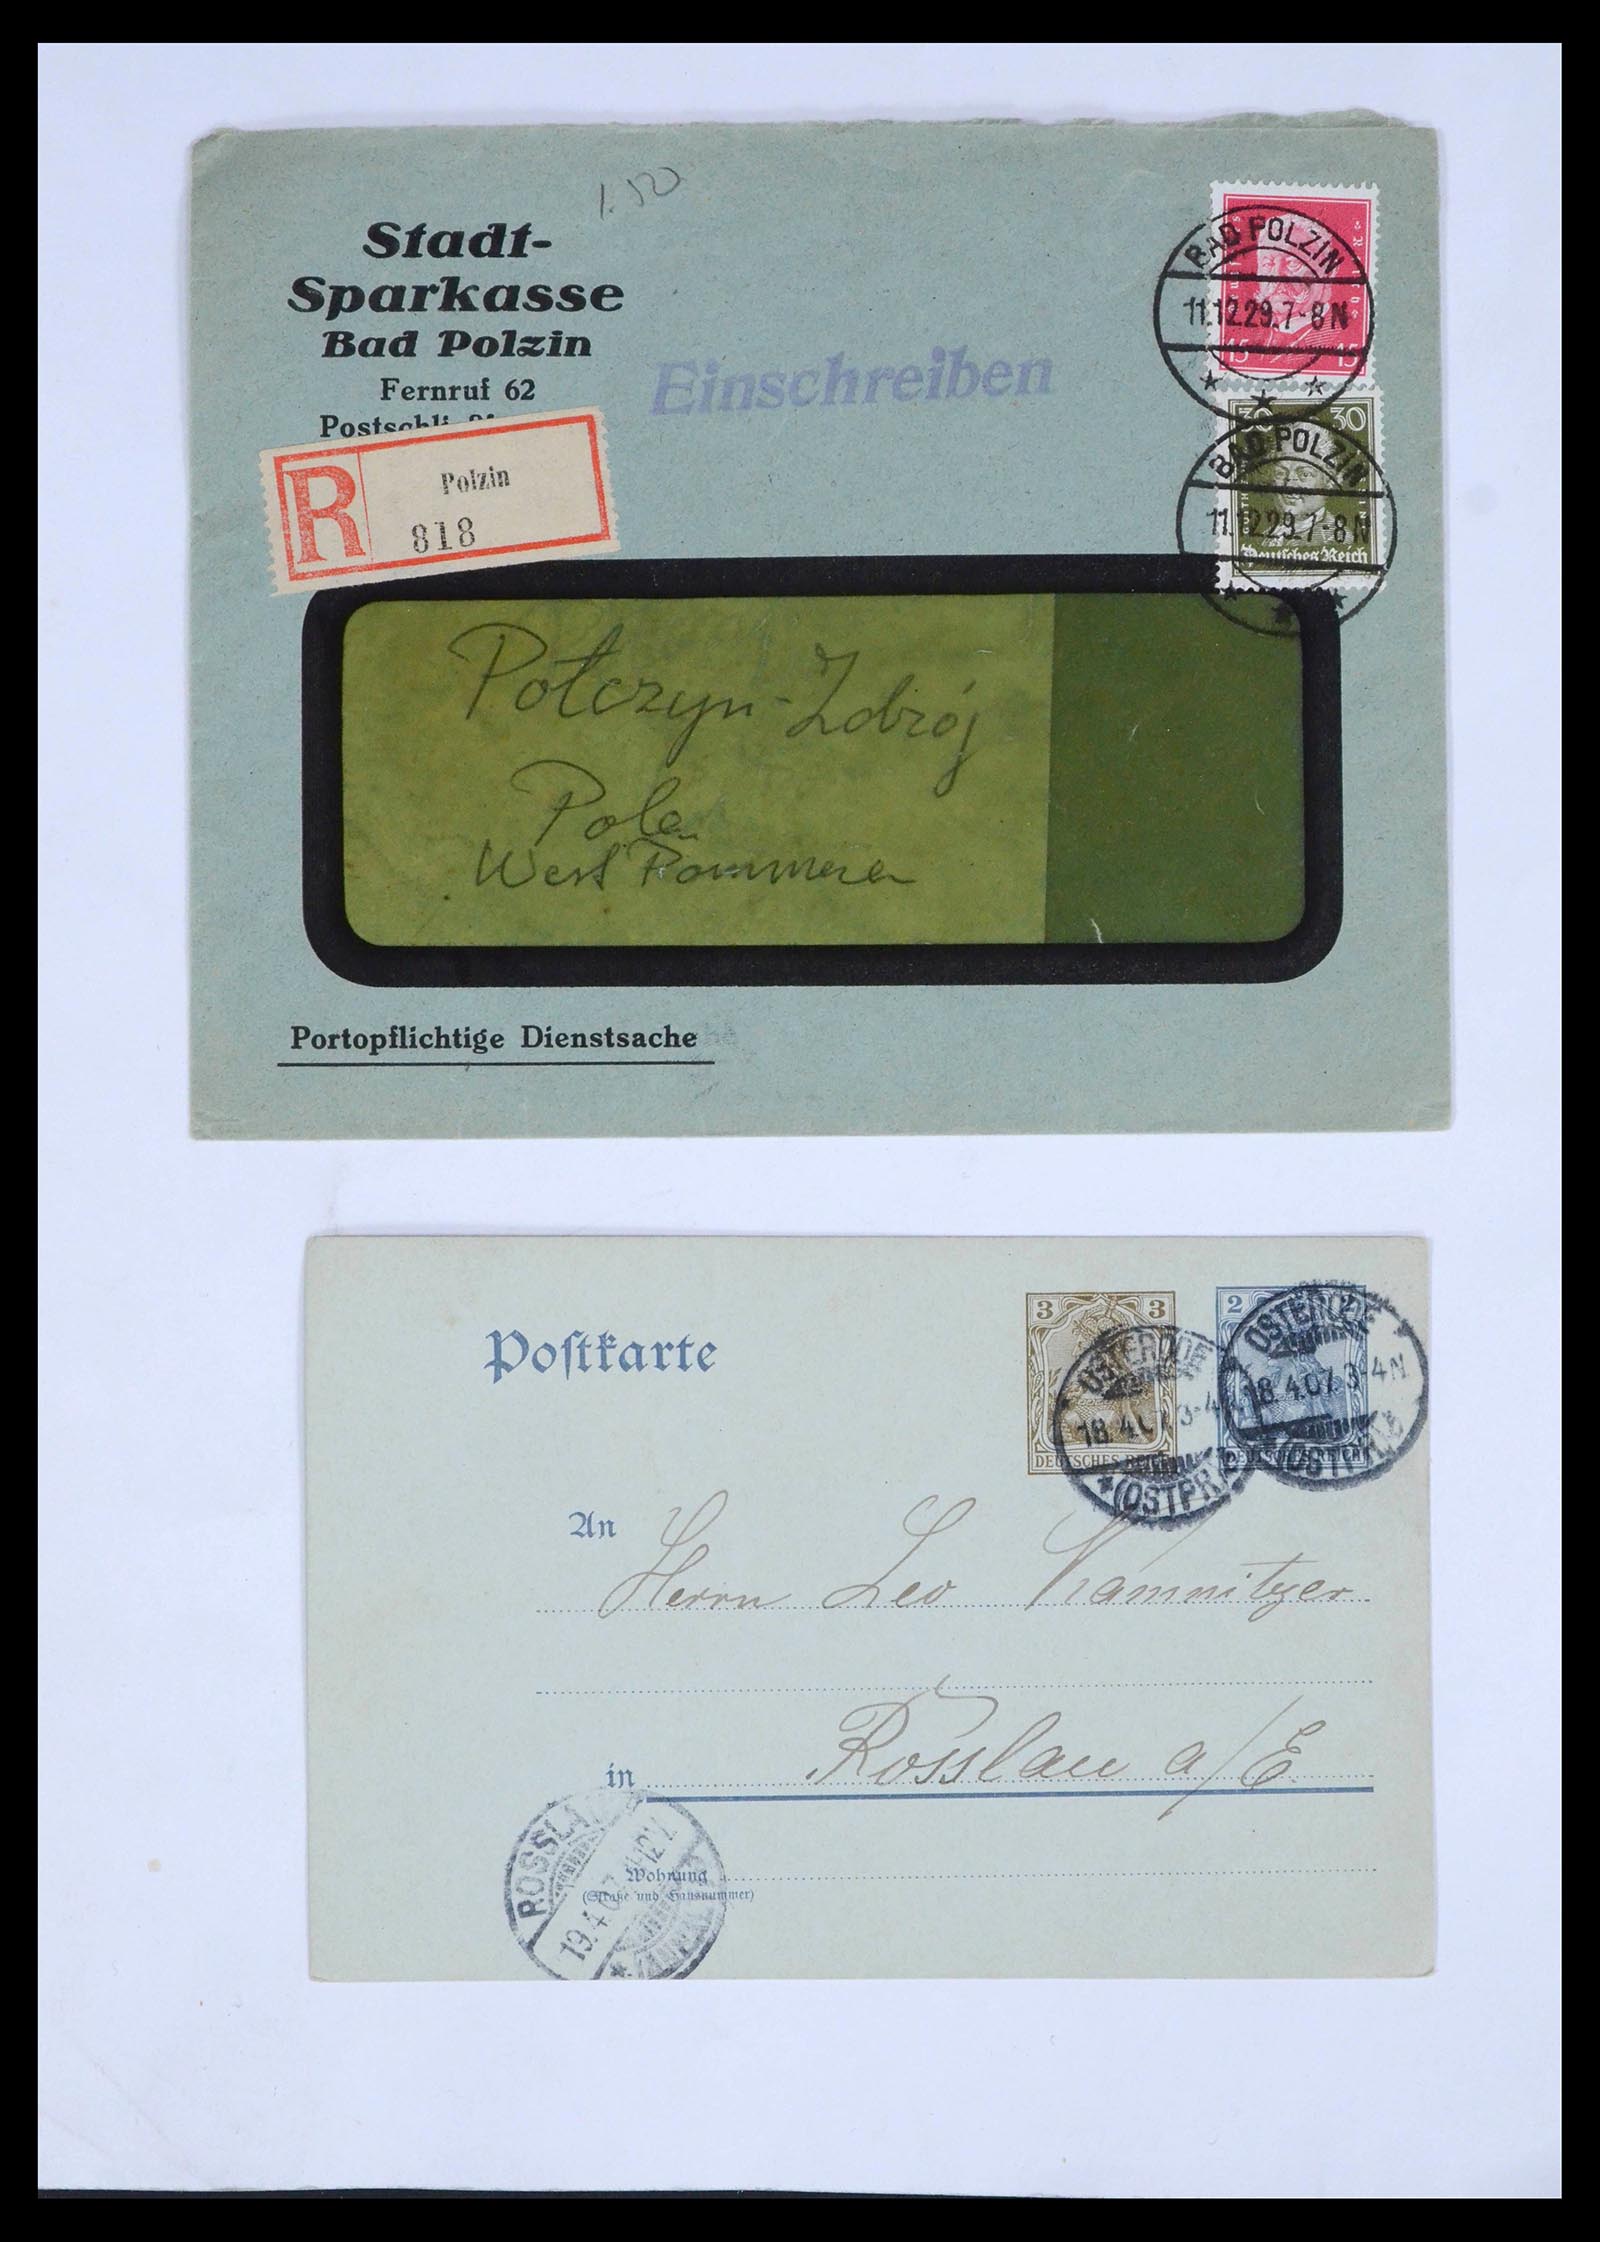 1.50
Stadt-
Sparkasse
Bad Polzin
Fernruf 62
Einschreiben
R
Polzin
818
15 15
BAD POLZIN
11.12.29.7-8N
30 30
BAD POLZIN
11.12.29.7-8N
Deutsches Reich
Połczyn-Zdrój
Polen
West Pommeren
Portopflichtige Dienstsache
Postkarte
3 3
DEUTSCHES REICH
2 2
DEUTSCHES REICH
OSTERODE
18.4.07.3-4N
(OSTPR.)
OSTERODE
18.4.07.3-4N
(OSTPR.)
An Herrn Leo Kamnitzer
in Rosslau a/E
ROSSLAU
19.4.07
Wohnung
(Straße und Hausnummer)